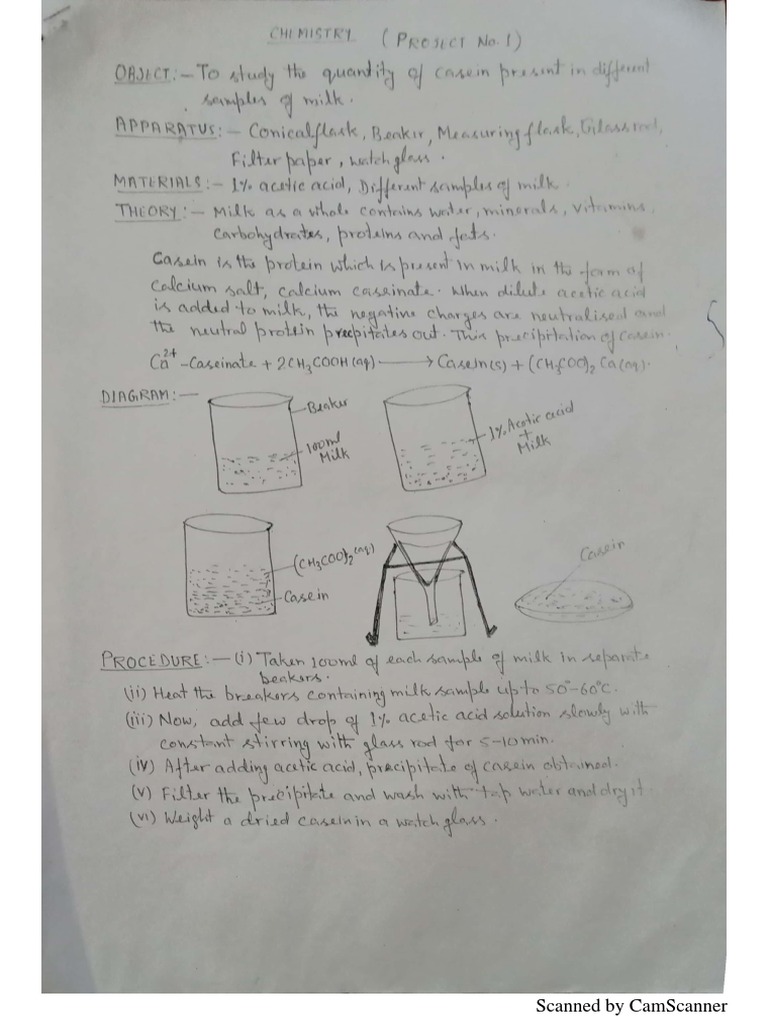 CHEMISTRY (PROJECT No. 1)
OBJECT:- To study the quantity of casein present in different
samples of milk.
APPARATUS:- Conical flask, Beaker, Measuring flask, Glass rod,
Filter paper, watch glass.
MATERIALS:- 1% acetic acid, Different samples of milk.
THEORY:- Milk as a whole contains water, minerals, vitamins,
carbohydrates, proteins and fats.
Casein is the protein which is present in milk in the form of
calcium salt, calcium caseinate. When dilute acetic acid
is added to milk, the negative charges are neutralised and
the neutral protein precipitates out. This precipitation of casein.
Ca²⁺-Caseinate + 2CH₃COOH(aq) → Casein(s) + (CH₃COO)₂Ca(aq).
DIAGRAM:-
Beaker
100ml
Milk
1% Acetic acid
+
Milk
(CH₃COO)₂(aq)
Casein
Casein
PROCEDURE:- (i) Taken 100ml of each sample of milk in separate
beakers.
(ii) Heat the breakers containing milk sample up to 50°-60°C.
(iii) Now, add few drop of 1% acetic acid solution slowly with
constant stirring with glass rod for 5-10min.
(iv) After adding acetic acid, precipitate of casein obtained.
(v) Filter the precipitate and wash with tap water and dry it.
(vi) Weight a dried casein in a watch glass.
Scanned by CamScanner